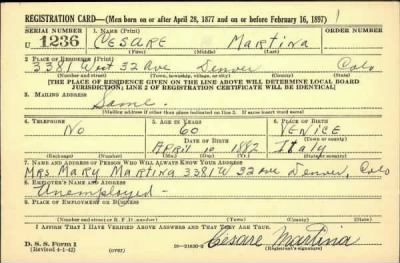 REGISTRATION CARD—(Men born on or after April 28, 1877 and on or before February 16, 1897)
SERIAL NUMBER 1. NAME (Print) ORDER NUMBER
U 1236 CESARE MARTINA
(First) (Middle) (Last)
2. PLACE OF RESIDENCE (Print)
3381 West 32 Ave Denver Colo
(Number and street) (Town, township, village, or city) (County) (State)
[THE PLACE OF RESIDENCE GIVEN ON THE LINE ABOVE WILL DETERMINE LOCAL BOARD
JURISDICTION; LINE 2 OF REGISTRATION CERTIFICATE WILL BE IDENTICAL]
3. MAILING ADDRESS
Same.
[Mailing address if other than place indicated on line 2. If same insert word same]
4. TELEPHONE 5. AGE IN YEARS 6. PLACE OF BIRTH
NO 60 VENICE
DATE OF BIRTH (Town or county)
APRIL 10 1882 Italy
(Exchange) (Number) (Mo.) (Day) (Yr.) (State or country)
7. NAME AND ADDRESS OF PERSON WHO WILL ALWAYS KNOW YOUR ADDRESS
MRS. MARY MARTINA 3381 W 32 AVE Denver, Colo
8. EMPLOYER'S NAME AND ADDRESS
Unemployed —
9. PLACE OF EMPLOYMENT OR BUSINESS
(Number and street or R. F. D. number) (Town) (County) (State)
I AFFIRM THAT I HAVE VERIFIED ABOVE ANSWERS AND THAT THEY ARE TRUE.
D. S. S. Form 1
(Revised 4-1-42) (over) Cesare Martina
(Registrant's signature)